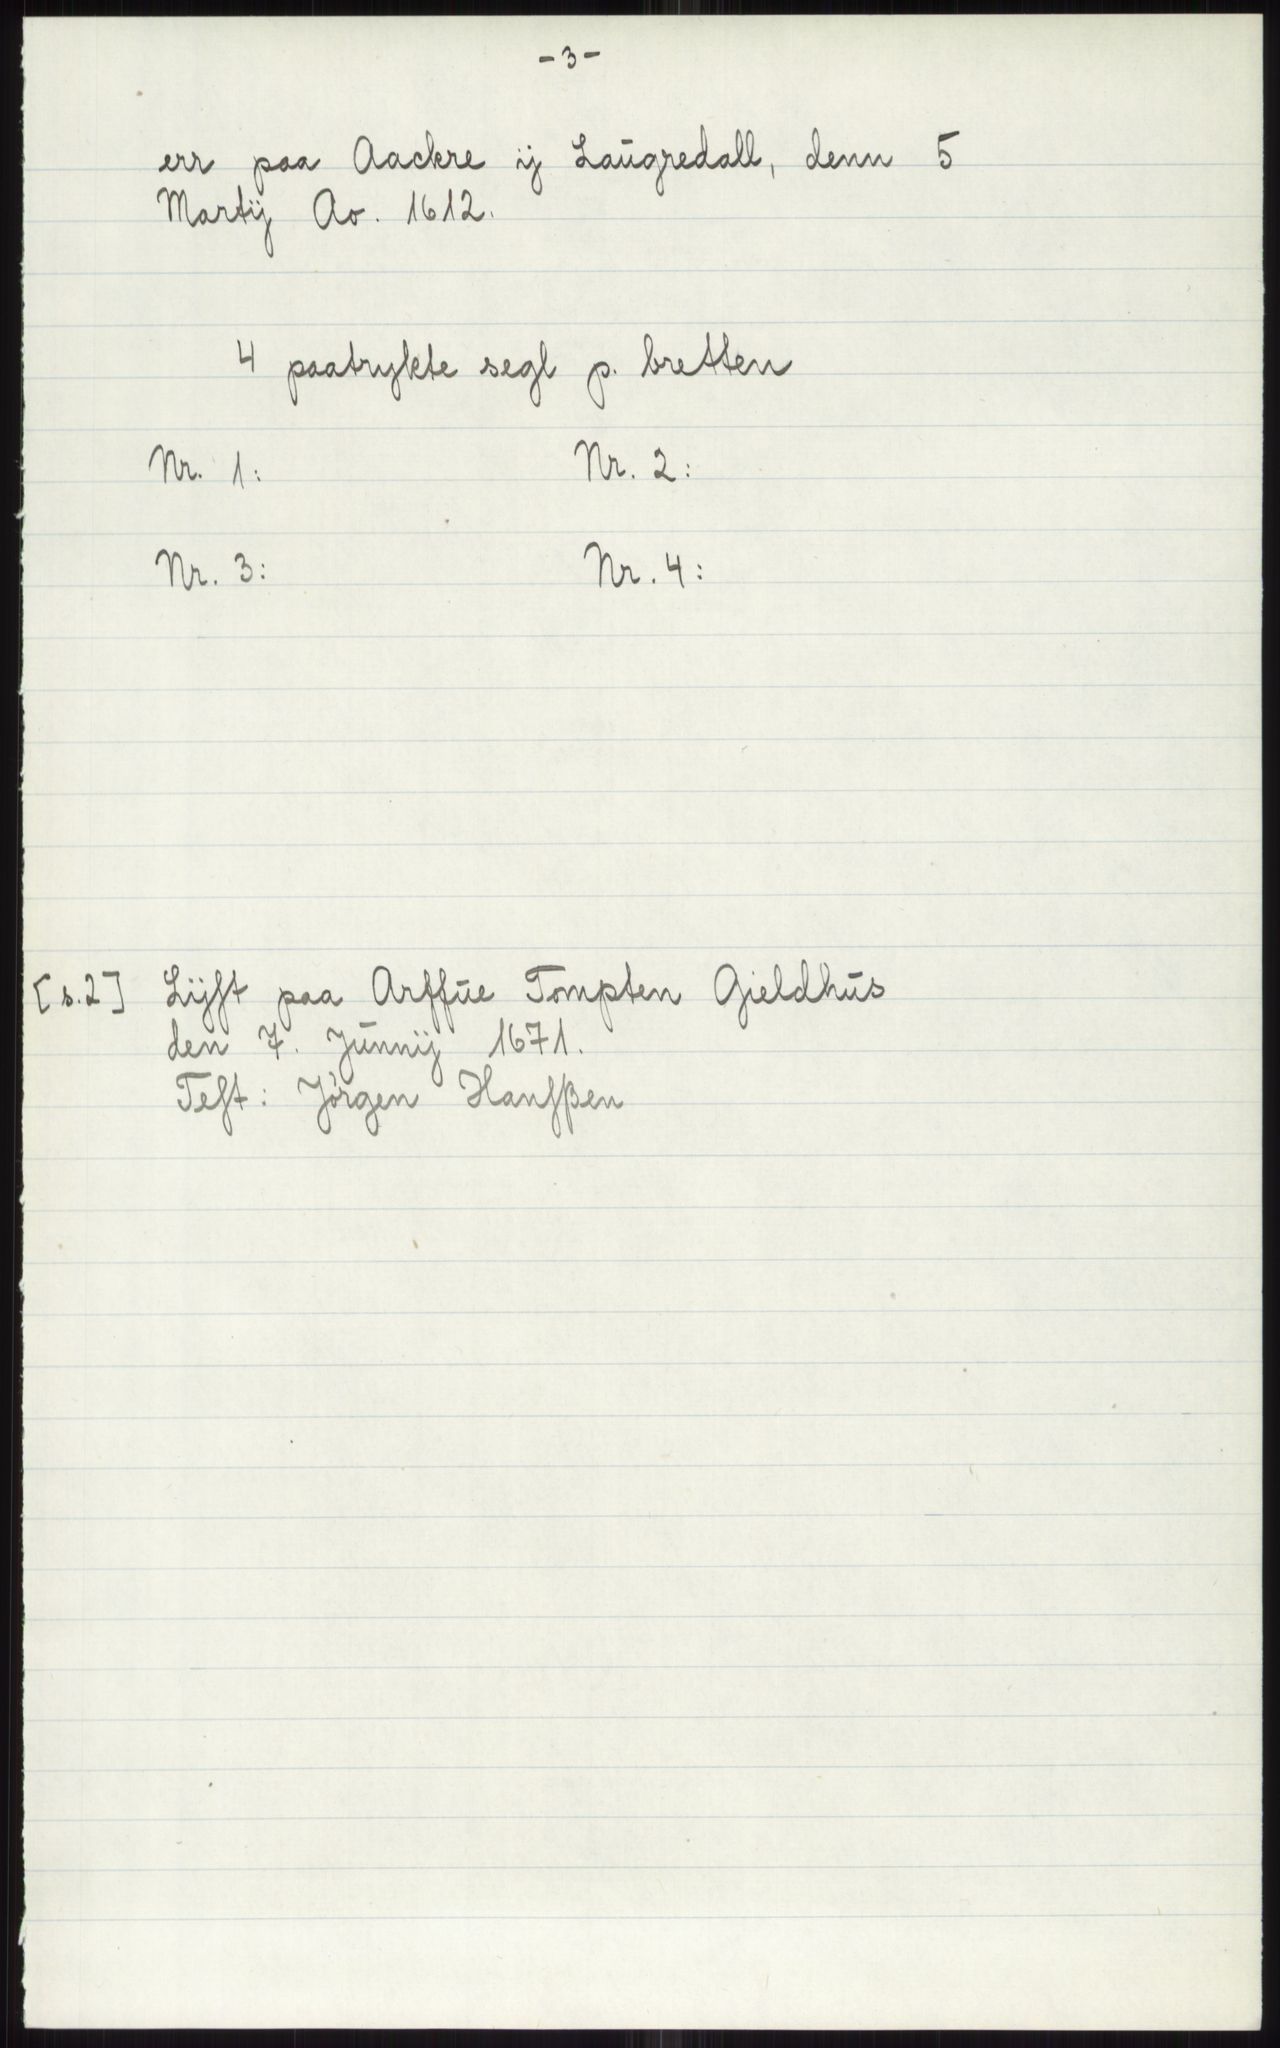 - 3 -
err paa Aackre ij Laŭgredall, denn 5
Martij Ao. 1612.
4 paatrykte segl p. bretten
Nr. 1: Nr. 2:
Nr. 3: Nr. 4:
[s.2] Lijſt paa Arffŭe Tompten Gieldhŭs
den 7. Jŭnnij 1671.
Teſt: Jörgen Hanſßen